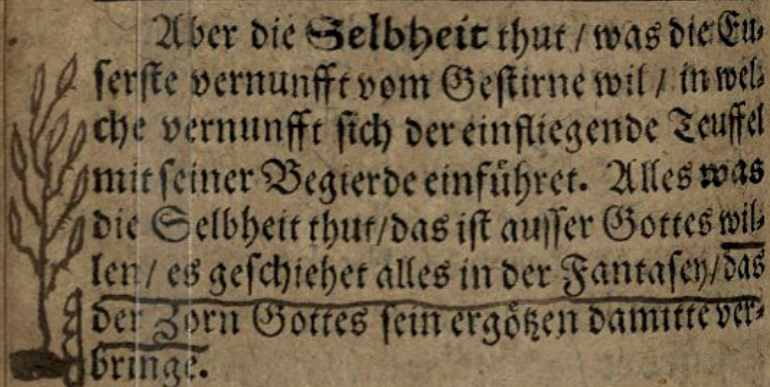 Aber die Selbheit thut / was die Eu⸗
serste vernunfft vom Gestirne wil / in wel⸗
che vernunfft sich der einfliegende Teuffel
mit seiner Begierde einführet. Alles was
die Selbheit thut/das ist ausser Gottes wil⸗
len/ es geschiehet alles in der Fantasey/das
der Zorn Gottes sein ergötzen damitte ver⸗
bringe.